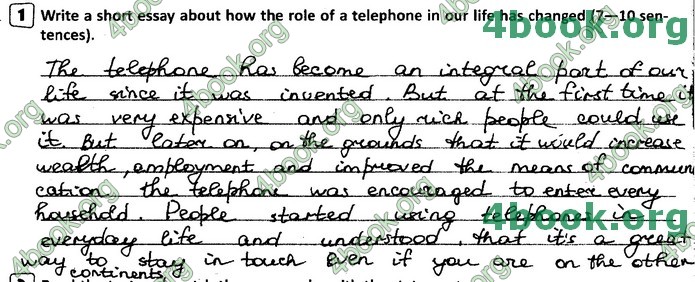 1 Write a short essay about how the role of a telephone in our life has changed (7—10 sen-
tences).
The telephone has become an integral part of our
life since it was invented. But at the first time it
was very expensive and only rich people could use
it. But later on, on the grounds that it would increase
wealth, employment and improved the means of commun
cation the telephone was encouraged to enter every
household. People started using telephones in
everyday life and understood, that it's a great
way to stay in touch even if you are on the other
continents
4book.org
4book.org
4book.org